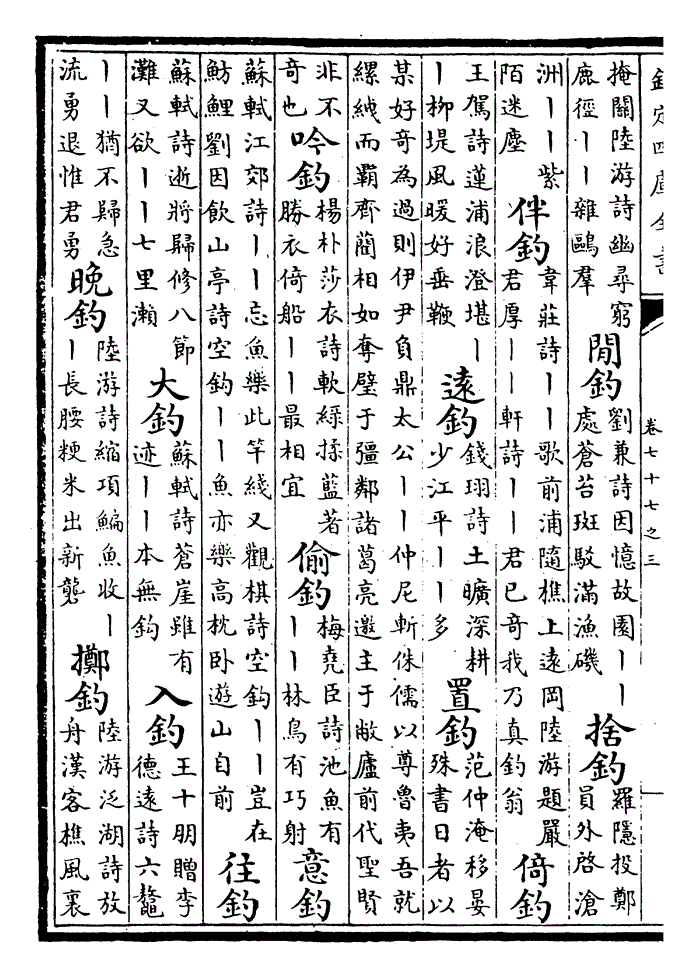 欽定四庫全書
卷七十七之三
掩關陸游詩幽尋窮
鹿徑丨丨雜鷗羣
閒釣
劉兼詩因憶故園丨丨
處蒼苔斑駮滿漁磯
捨釣
羅隱投鄭
員外啓滄
洲丨丨紫
陌迷塵
伴釣
韋莊詩丨丨歌前浦隨樵上遠岡陸游題嚴
君厚丨丨軒詩丨丨君已奇我乃真釣翁
倚釣
王駕詩蓮浦浪澄堪丨
丨柳堤風暖好垂鞭
遠釣
錢珝詩土曠深耕
少江平丨丨多
置釣
范仲淹移晏
殊書日者以
某好奇為過則伊尹負鼎太公丨丨仲尼斬侏儒以尊魯夷吾就
縲紲而霸齊藺相如奪璧于彊鄰諸葛亮邀主于敝廬前代聖賢
非不
奇也
吟釣
楊朴莎衣詩軟綠揉藍著
勝衣倚船丨丨最相宜
偷釣
梅堯臣詩池魚有
丨丨林鳥有巧射
意釣
蘇軾江郊詩丨丨忘魚樂此竿綫又觀棋詩空鈎丨丨豈在
魴鯉劉因飲山亭詩空鈎丨丨魚亦樂高枕卧遊山自前
往釣
蘇軾詩逝將歸修八節
灘又欲丨丨七里瀨
大釣
蘇軾詩蒼崖雖有
迹丨丨本無鈎
入釣
王十朋贈李
德遠詩六鼇
丨丨猶不歸急
流勇退惟君勇
晚釣
陸游詩縮項鯿魚收丨
丨長腰粳米出新礱
擲釣
陸游泛湖詩放
舟漢客樵風裏